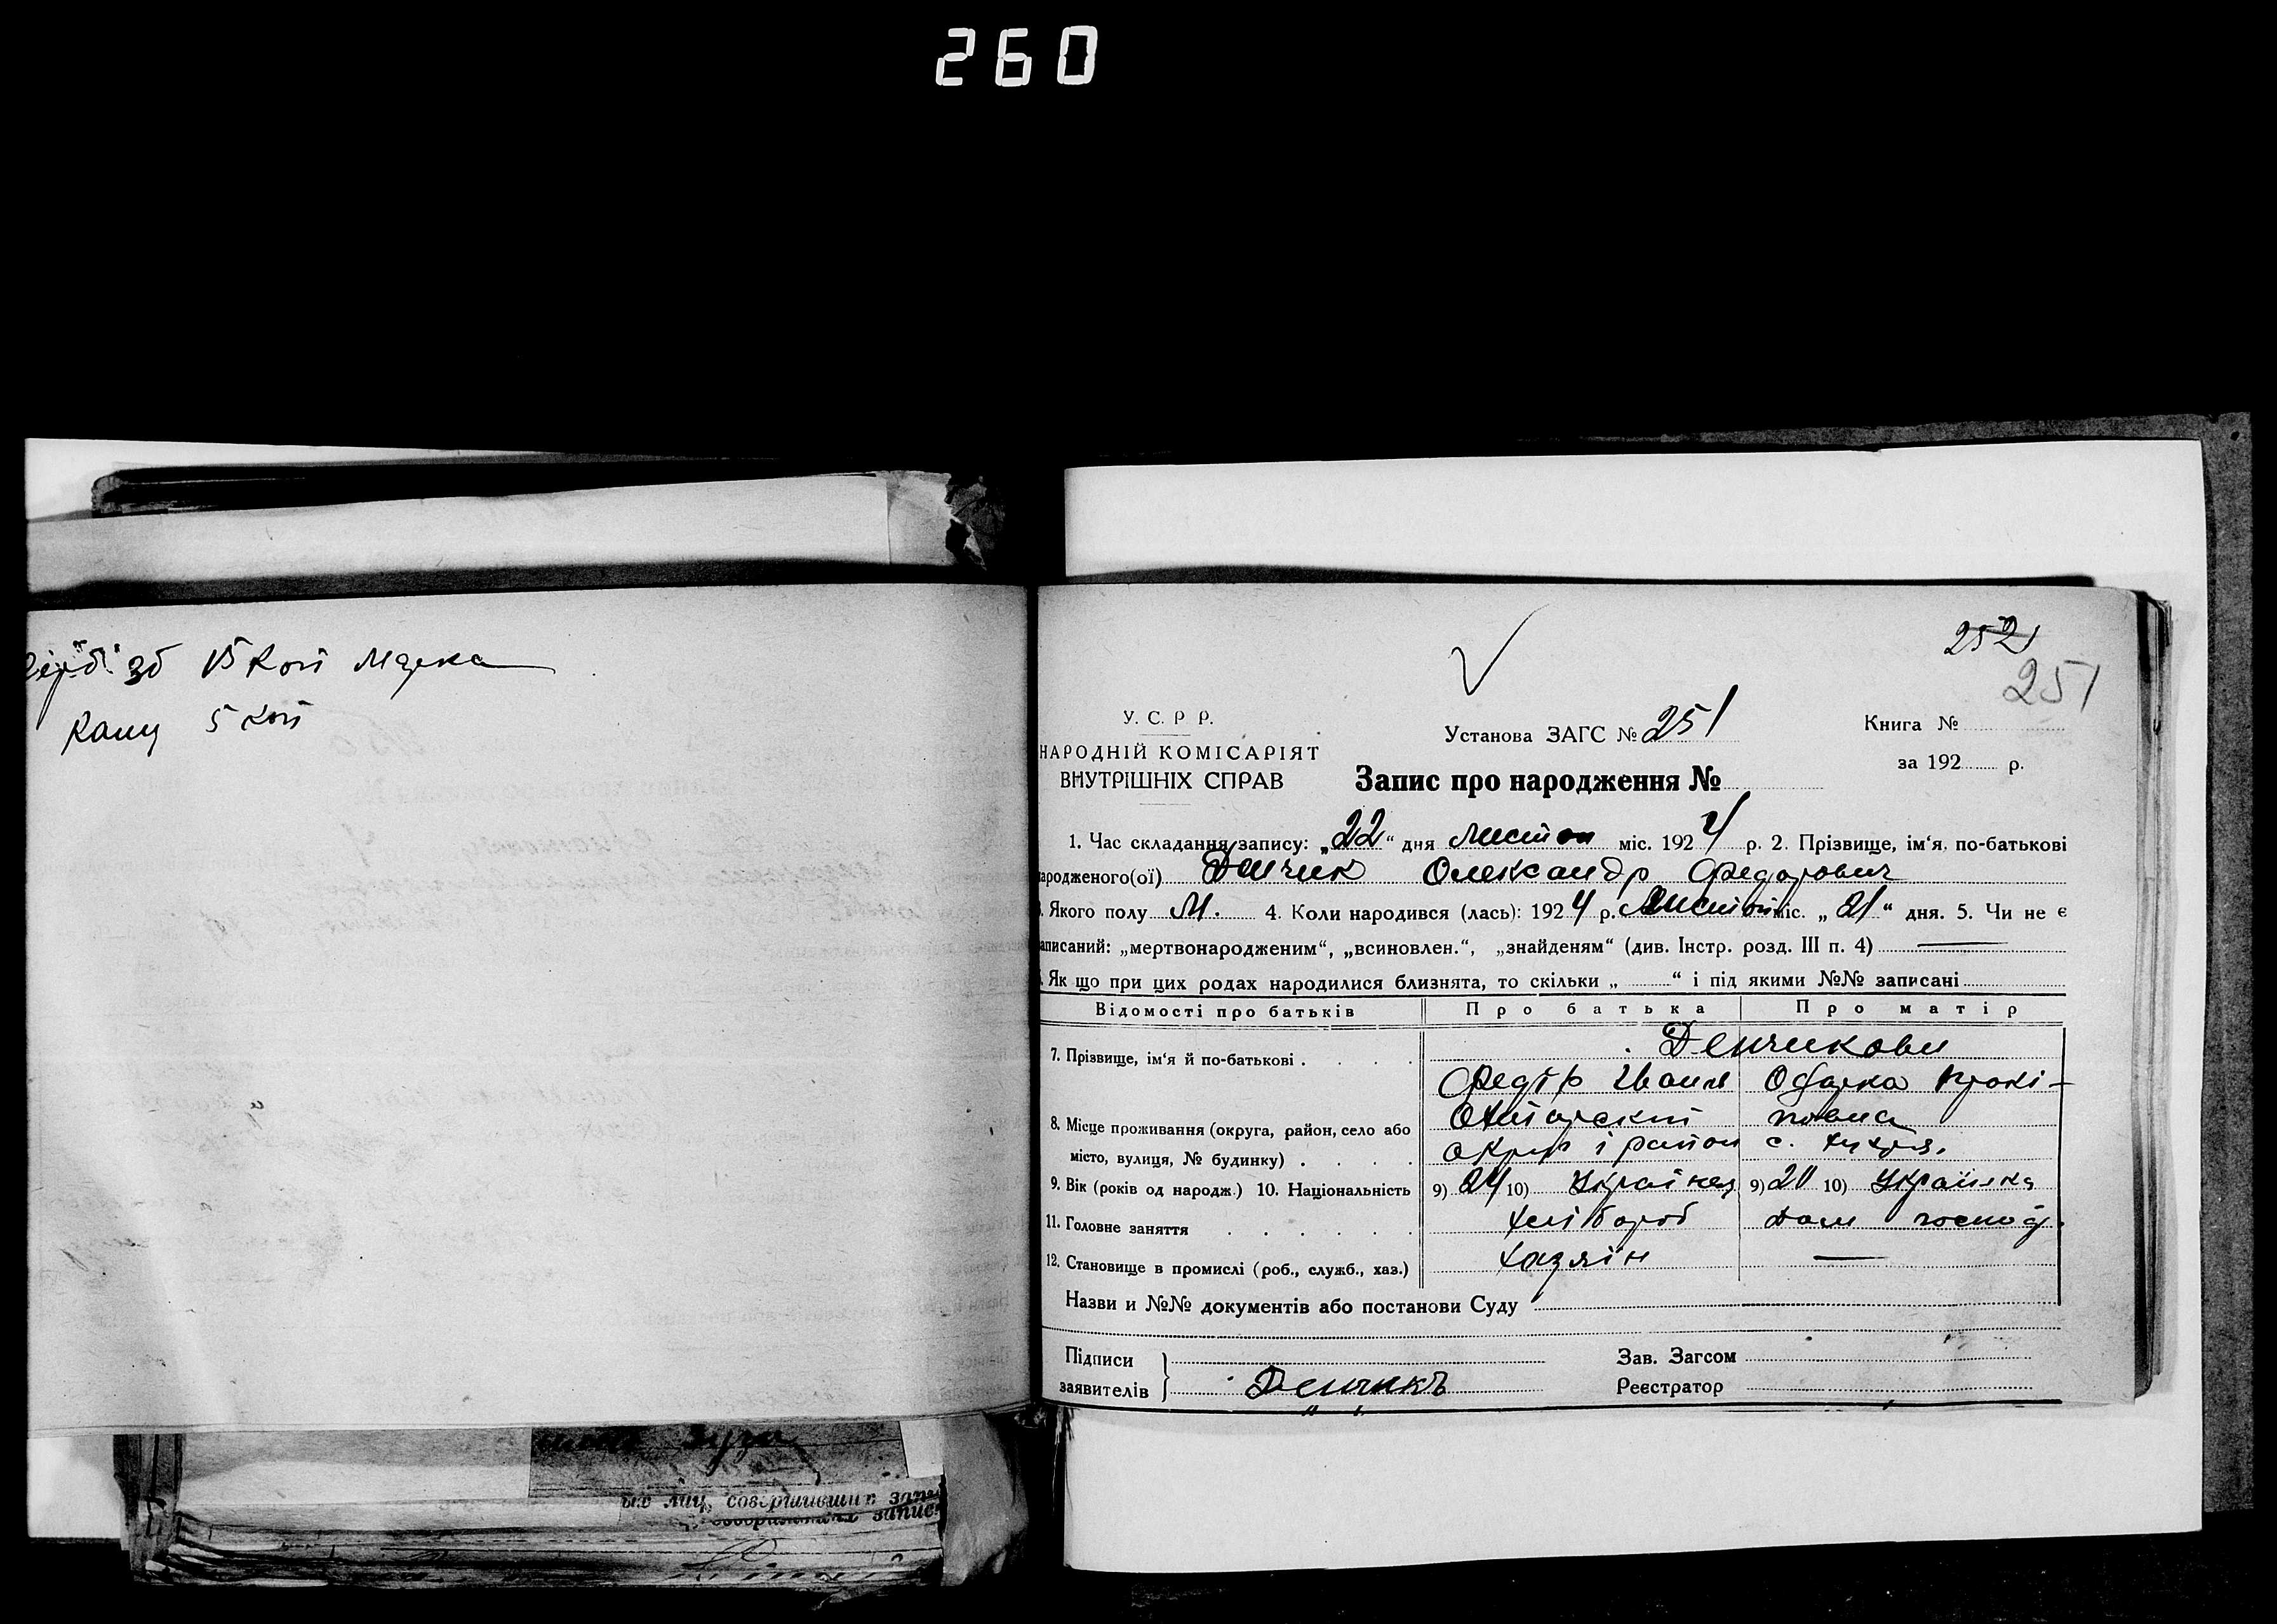 260
зб 15 коп марка
5 коп
252
251
У. С. Р Р.
НАРОДНІЙ КОМІСАРІЯТ
ВНУТРІШНІХ СПРАВ
Установа ЗАГС № 251
Книга №
за 192 р.
Запис про народження №
1. Час складання запису: „22“ дня Листоп міс. 1924 р. 2. Прізвище, ім‘я, по-батькові
ародженого(ої) Демчик Олександр Федорович
. Якого полу М. 4. Коли народився (лась): 1924 р. Листоп міс. „21“ дня. 5. Чи не є
аписаний: „мертвонародженим“, „всиновлен.“, „знайденям“ (див. Інстр. розд. III п. 4) —
. Як що при цих родах народилися близнята, то скільки „ “ і під якими №№ записані
Відомості про батьків Про батька Про матір
7. Прізвище, ім‘я й по-батькові . . . . Демчикови
Федір Іванів Одарка Прокі-
повна
8. Місце проживання (округа, район, село або
місто, вулиця, № будинку) . . . . Охтирский
округ і район с. Хухря.
9. Вік (років од народж.) 10. Національність 9) 24 10) Українец 9) 20 10) Українка
11. Головне заняття . . . . . . хлібороб Дом господ.
12. Становище в промислі (роб., служб., хаз.) хазяїн —
Назви и №№ документів або постанови Суду
Підписи
заявителів } Демчикъ
Зав. Загсом
Реєстратор
зуза
ых лиц, совершивших запи
совершивших запис